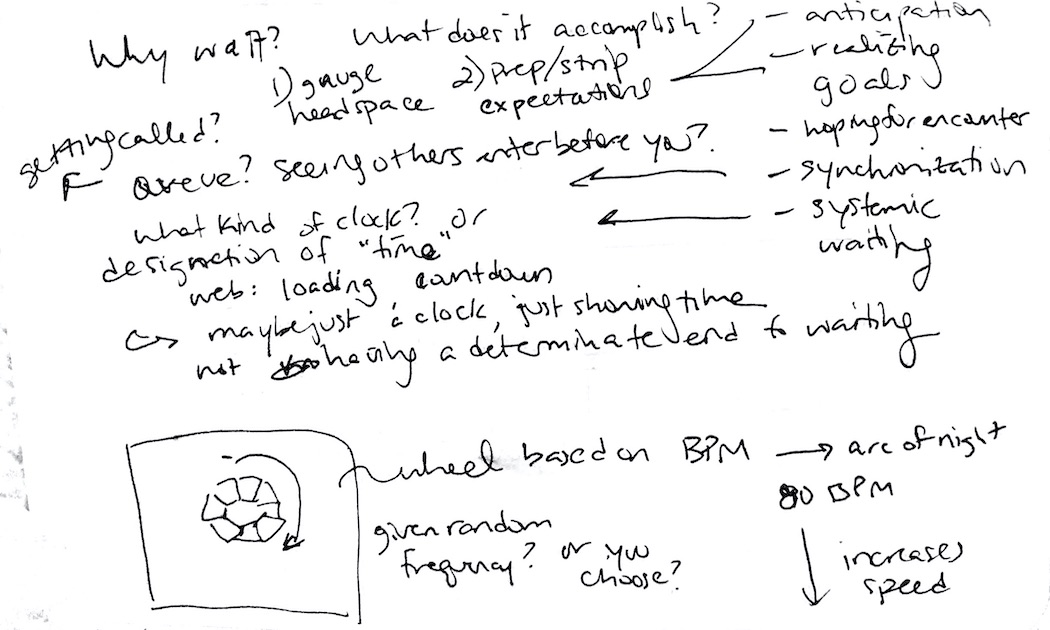 Why wait?
What does it accomplish?
1) gauge
headspace
2) prep/strip
expectations
- anticipation
- realizing
goals
- hoping for encounter
- synchronization
- systemic
waiting
getting called?
Queue? seeing others enter before you?
what kind of clock? or
designation of "time"
web: loading countdown
maybe just a clock, just showing time
not having a determinate end to waiting
wheel based on BPM → arc of night
80 BPM
increases
speed
given random
frequency? or you
choose?